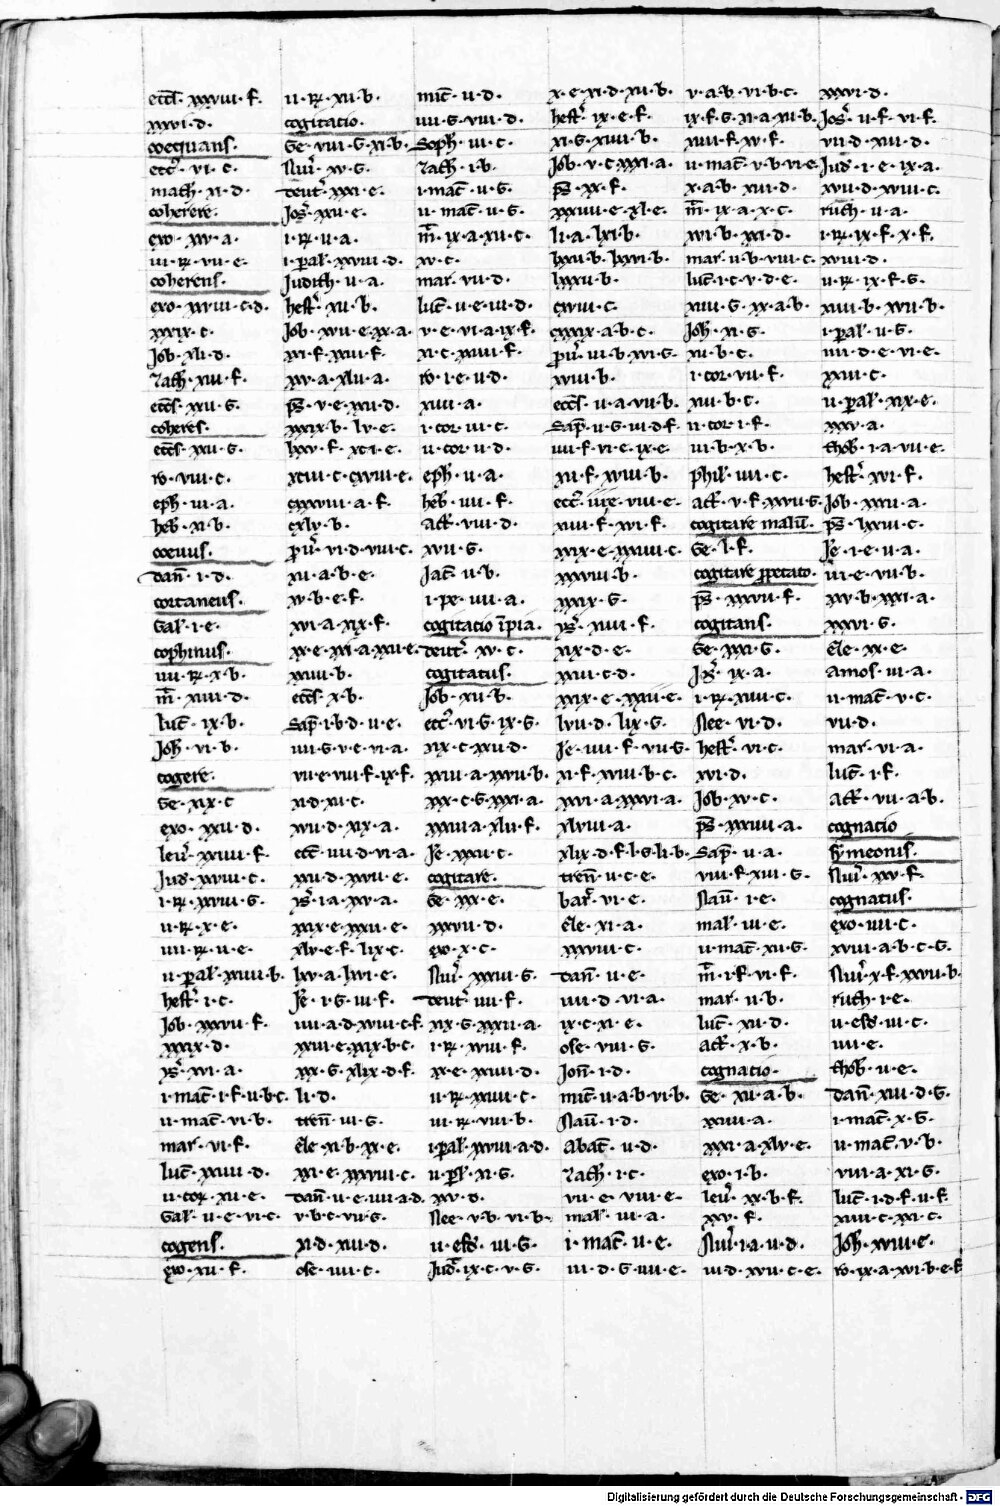 eccs̄· xxxviii· f·
xxxvi·d·
coequans·
ecc̄· vi· c·
math· xi· d·
coherere·
exo· xv· a·
iii· rꝫ· vii· e·
coherens·
exo· xxviii· c·d·
xxxix· c·
Job· xli· d·
Zach· xiii· f·
eccs̄· xxii· g·
coheres·
eccs̄· xxii· g·
ro· viii· c·
eph· iii· a·
heb· xi· b·
coevus·
dan̄· i· d·
coetaneus·
Gal· i· e·
cophinus·
iiii· rꝫ· x· b·
m̄· xiiii· d·
luc̄· ix· b·
Joh̄· vi· b·
cogere·
Ge· xix· c
exo· xxii· d·
levī· xxiiii· f·
Jud· xviii· c·
i· rꝫ· xxviii· g·
ii· rꝫ· x· e·
iiii· rꝫ· ii· e·
ii· paral· xxiiii· b·
hest̄· i· c·
Job· xxxvii· f·
xxxix· d·
ys̄· xvi· a·
i· mac̄· i· f· ii· b·c·
ii· mac̄· vi· b·
mar· vi· f·
luc̄· xxiiii· d·
ii· cor· xii· e·
Gal· ii· e· vi· c·
cogens·
exo· xii· f·
ii· rꝫ· xii· b·
cogitatio·
Ge· viii· g· xi· b·
Nū· xv· g·
deut̄· xxxi· e·
Jos̄· xxii· e·
i· rꝫ· ii· a·
i· paral· xxviii· d·
Judith· ii· a·
hest̄· xii· b·
Job· xvii· e· xx· a·
xxi· f· xxiii· f·
xxv· a· xlii· a·
ps̄· v· e· xxii· d·
xxxix· b· lv· e·
lxxv· f· xci· e·
xciii· c· cxviii· e·
cxxxviii· a· f·
cxlv· b·
prū· vi· d· viii· c·
xii· a· b· e·
xv· b· e· f·
xvi· a· xix· f·
xx· e· xxi· a· xxii· e·
xxiiii· b·
eccs̄· x· b·
Sap̄· i· b· d· ii· e·
iiii· g· v· e· vi· a·
vii· e· viii· f· ix· f·
xi· d· xii· c·
xvii· d· xix· a·
ecc̄· iiii· d· vi· a·
xxii· d· xxvii· e·
ys̄· i· a· xv· a·
xxix· e· xxxii· e·
xlv· e· f· lix· c·
lxv· a· lxvi· e·
Je· i· g· iii· f·
iiii· a· d· xviii· c· f·
xxiii· e· xxix· b· c·
xxx· g· xlix· d· f·
li· d·
tren̄· iii· g·
eze· xi· b· xx· e·
xxi· e· xxxviii· c·
dan̄· ii· e· iiii· a· d·
v· b· c· vii· g·
xi· d· xiii· d·
ose· iiii· c·
mic̄· ii· d·
iiii· g· viii· d·
Soph̄· iii· c·
Zach· i· b·
i· mac̄· ii· g·
ii· mac̄· ii· g·
m̄· ix· a· xii· c·
xv· c·
mar· vii· d·
luc̄· ii· e· iii· d·
v· e· vi· a· ix· f·
xi· c· xxiiii· f·
ro· i· e· ii· d·
xiiii· a·
i· cor· iii· c·
ii· cor· ii· d·
eph· ii· a·
heb̄· iiii· f·
act̄· viii· d·
xvii· g·
Jac̄· ii· b·
i· pe· iiii· a·
cogitatio īpia·
deut̄· xv· c·
cogitatus·
Job· xii· b·
ecc̄· vi· g· ix· g·
xix· c· xxii· d·
xxiii· a· xxvii· b·
xxx· c· g· xxxi· a·
xxxiii· a· xlii· f·
Je· xxxii· c·
cogitare·
Ge· xx· e·
xxxvii· d·
exo· x· c·
Nū· xxxiii· g·
deut̄· iiii· f·
xix· g· xxxii· a·
i· rꝫ· xviii· f·
xx· e· xxiiii· d·
ii· rꝫ· xxiiii· c·
iii· rꝫ· viii· b·
i· paral· xxviii· a· d·
ii· paral· xi· g·
xxv· d·
Nee· v· b· vi· b·
ii· esd· iii· g·
Judt̄· ix· c· v· g·
x· e· xi· d· xii· b·
hest̄· ix· e· f·
xi· g· xiiii· b·
Job· v· c· xxxi· a·
ps̄· xx· f·
xxxiii· e· xl· e·
li· a· lxi· b·
lxxii· b· lxxvi· b·
lxxxii· b·
cxviii· c·
cxxxix· a· b· c·
prū· iii· b· xvi· g·
xviii· b·
eccs̄· ii· a· vii· b·
Sap̄· ii· g· iii· d· f·
iiii· f· vi· e· ix· e·
xii· f· xviii· b·
ecc̄· iii· e· viii· e·
xiiii· f· xvi· f·
xxix· e· xxxiiii· c·
xxxviii· b·
xxxix· g·
ys̄· xiiii· f·
xix· d· e·
xxiii· c· d·
xxix· e· xxxii· e·
lvii· d· lix· g·
Je· iiii· f· vii· g·
xi· f· xviii· b· c·
xxvi· a· xxxvi· a·
xlviii· a·
xlix· d· f· l· g· li· b·
tren̄· ii· c· e·
bar̄· vi· e·
eze· xi· a·
xxxviii· c·
dan̄· ii· e·
iiii· d· vi· a·
ix· c· xi· e·
ose· viii· g·
Jon̄· i· d·
mic̄· ii· a· b· vi· b·
Naū· i· d·
Abac̄· ii· d·
Zach· i· c·
vii· e· viii· e·
mal· iii· a·
i· mac̄· ii· e·
iii· d· g· iiii· e·
v· a· b· vi· b· c·
ix· f· g· xi· a· xii· b·
xiiii· f· xv· f·
ii· mac̄· v· b· vi· e·
x· a· b· xii· d·
m̄· ix· a· x· c·
xvi· b· xxi· d·
mar· ii· b· viii· c·
luc̄· i· c· v· d· e·
xiiii· g· xx· a· b·
Joh̄· xi· g·
xii· b· c·
i· cor· vii· f·
xiii· b· c·
ii· cor· i· f·
iii· b· x· b·
phil· iiii· c·
act̄· v· f· xxvii· g·
cogitare malū·
Ge· l· f·
cogitare ppetato·
ps̄· xxxvii· f·
cogitans·
Ge· xxxi· g·
Js̄· ix· a·
i· rꝫ· xviii· c·
Nee· vi· d·
hest̄· vi· c·
xvi· d·
Job· xv· c·
ps̄· xxxiiii· a·
Sap̄· ii· a·
viii· f· xiii· g·
Naū· i· e·
mal· iii· e·
ii· mac̄· xii· g·
m̄· i· f· vi· f·
mar· ii· b·
luc̄· xii· d·
act̄· x· b·
cognatio·
Ge· xii· a· b·
xxiiii· a·
xxxi· a· xlv· e·
exo· i· b·
levī· xx· b· f·
xxv· f·
Nū· i· a· ii· d·
iii· d· xvii· c· e·
xxxvi· d·
Jos̄· ii· f· vi· f·
vii· d· xiii· d·
Jud· i· e· ix· a·
xvii· d· xviii· c·
ruth· ii· a·
i· rꝫ· ix· f· x· f·
xviii· d·
ii· rꝫ· ix· f· g·
xiiii· b· xvii· b·
i· paral· ii· g·
iiii· d· e· vi· e·
xxiii· c·
ii· paral· xix· e·
xxxv· a·
thob· i· a· vii· e·
hest̄· xvi· f·
Job· xxxii· a·
ps̄· lxxiii· c·
Je· i· e· ii· a·
iii· e· vii· b·
xv· b· xxxi· a·
xxxvi· g·
eze· xx· e·
amos· iii· a·
ii· mac̄· v· c·
vii· d·
mar· vi· a·
luc̄· i· f·
act̄· vii· a· b·
cognatio
symeonis·
Nū· xxv· f·
cognatus·
exo· iiii· c·
xviii· a· b· c· g·
Nū· x· f· xxvii· b·
ruth· i· e·
ii· esd· iii· c·
iiii· e·
thob· ii· e·
dan̄· xiii· d· g·
i· mac̄· x· g·
ii· mac̄· v· b·
viii· a· xi· g·
luc̄· i· d· f· ii· f·
xiiii· c· xxi· c·
Joh̄· xviii· e·
ro· ix· a· xvi· b· e· f
Digitalisierung gefördert durch die Deutsche Forschungsgemeinschaft - DFG